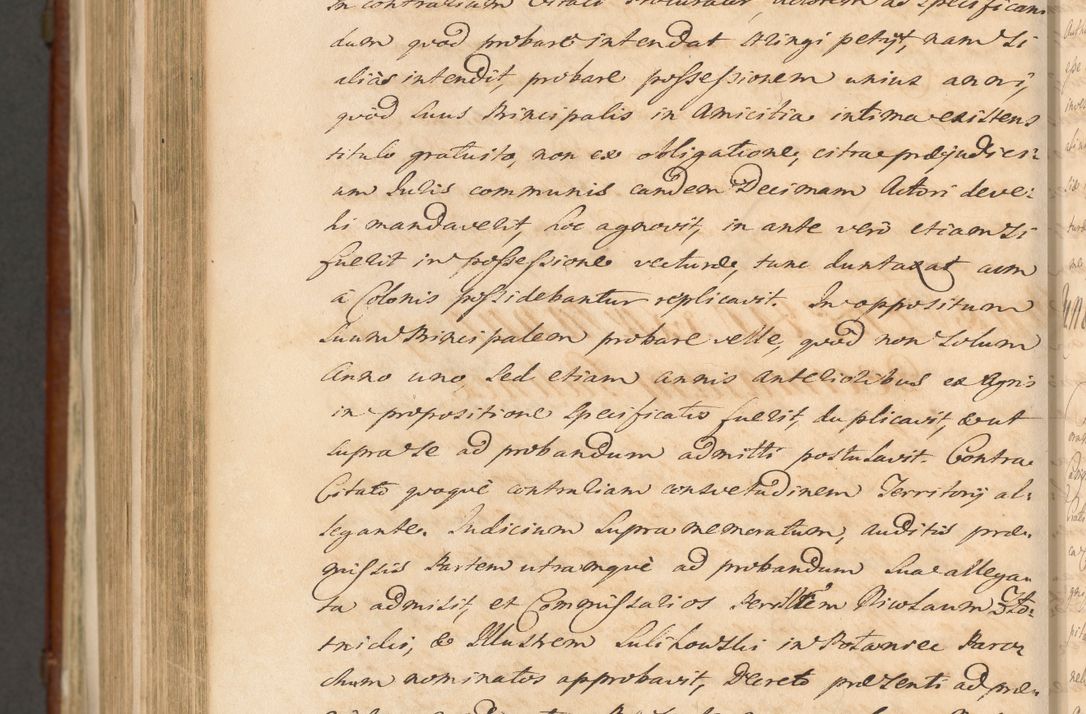 In contrarium Citati Procurator, Actorem ad specifican
dum quod probare intendat stringi petyt, nam si
alias intendit, probare possessionem unius anni,
quòd suus Principalis in Amicitia intima existens
titulo gratuito, non ex obligatione, citra præjudici:
um Iuris communis eandem Decimam Actori deve:
hi mandaverit, hoc agnovit, in ante verò etiam si
fuerit in possessione vecturæ, tunc duntaxat cum
à Colonis possidebantur replicavit. In oppositum
suum Principalem probare velle, quod non solum
Anno uno sed etiam annis anterioribus ex Agris
in propositione specificatis fuerit, duplicavit, & ut
supra se ad probandum admitti postulavit. Contra
Citato quoquè contrariam consvetudinem Territorij al:
legante. Iudicium supra memoratum, auditis præ:
missis Partem utramquè ad probandum sua allega:
ta admisit, et Commissarios Nicolaum
& Illustrem Sulikowski in Paro:
chum nominatos approbavit, Decreto præsenti ad præ: